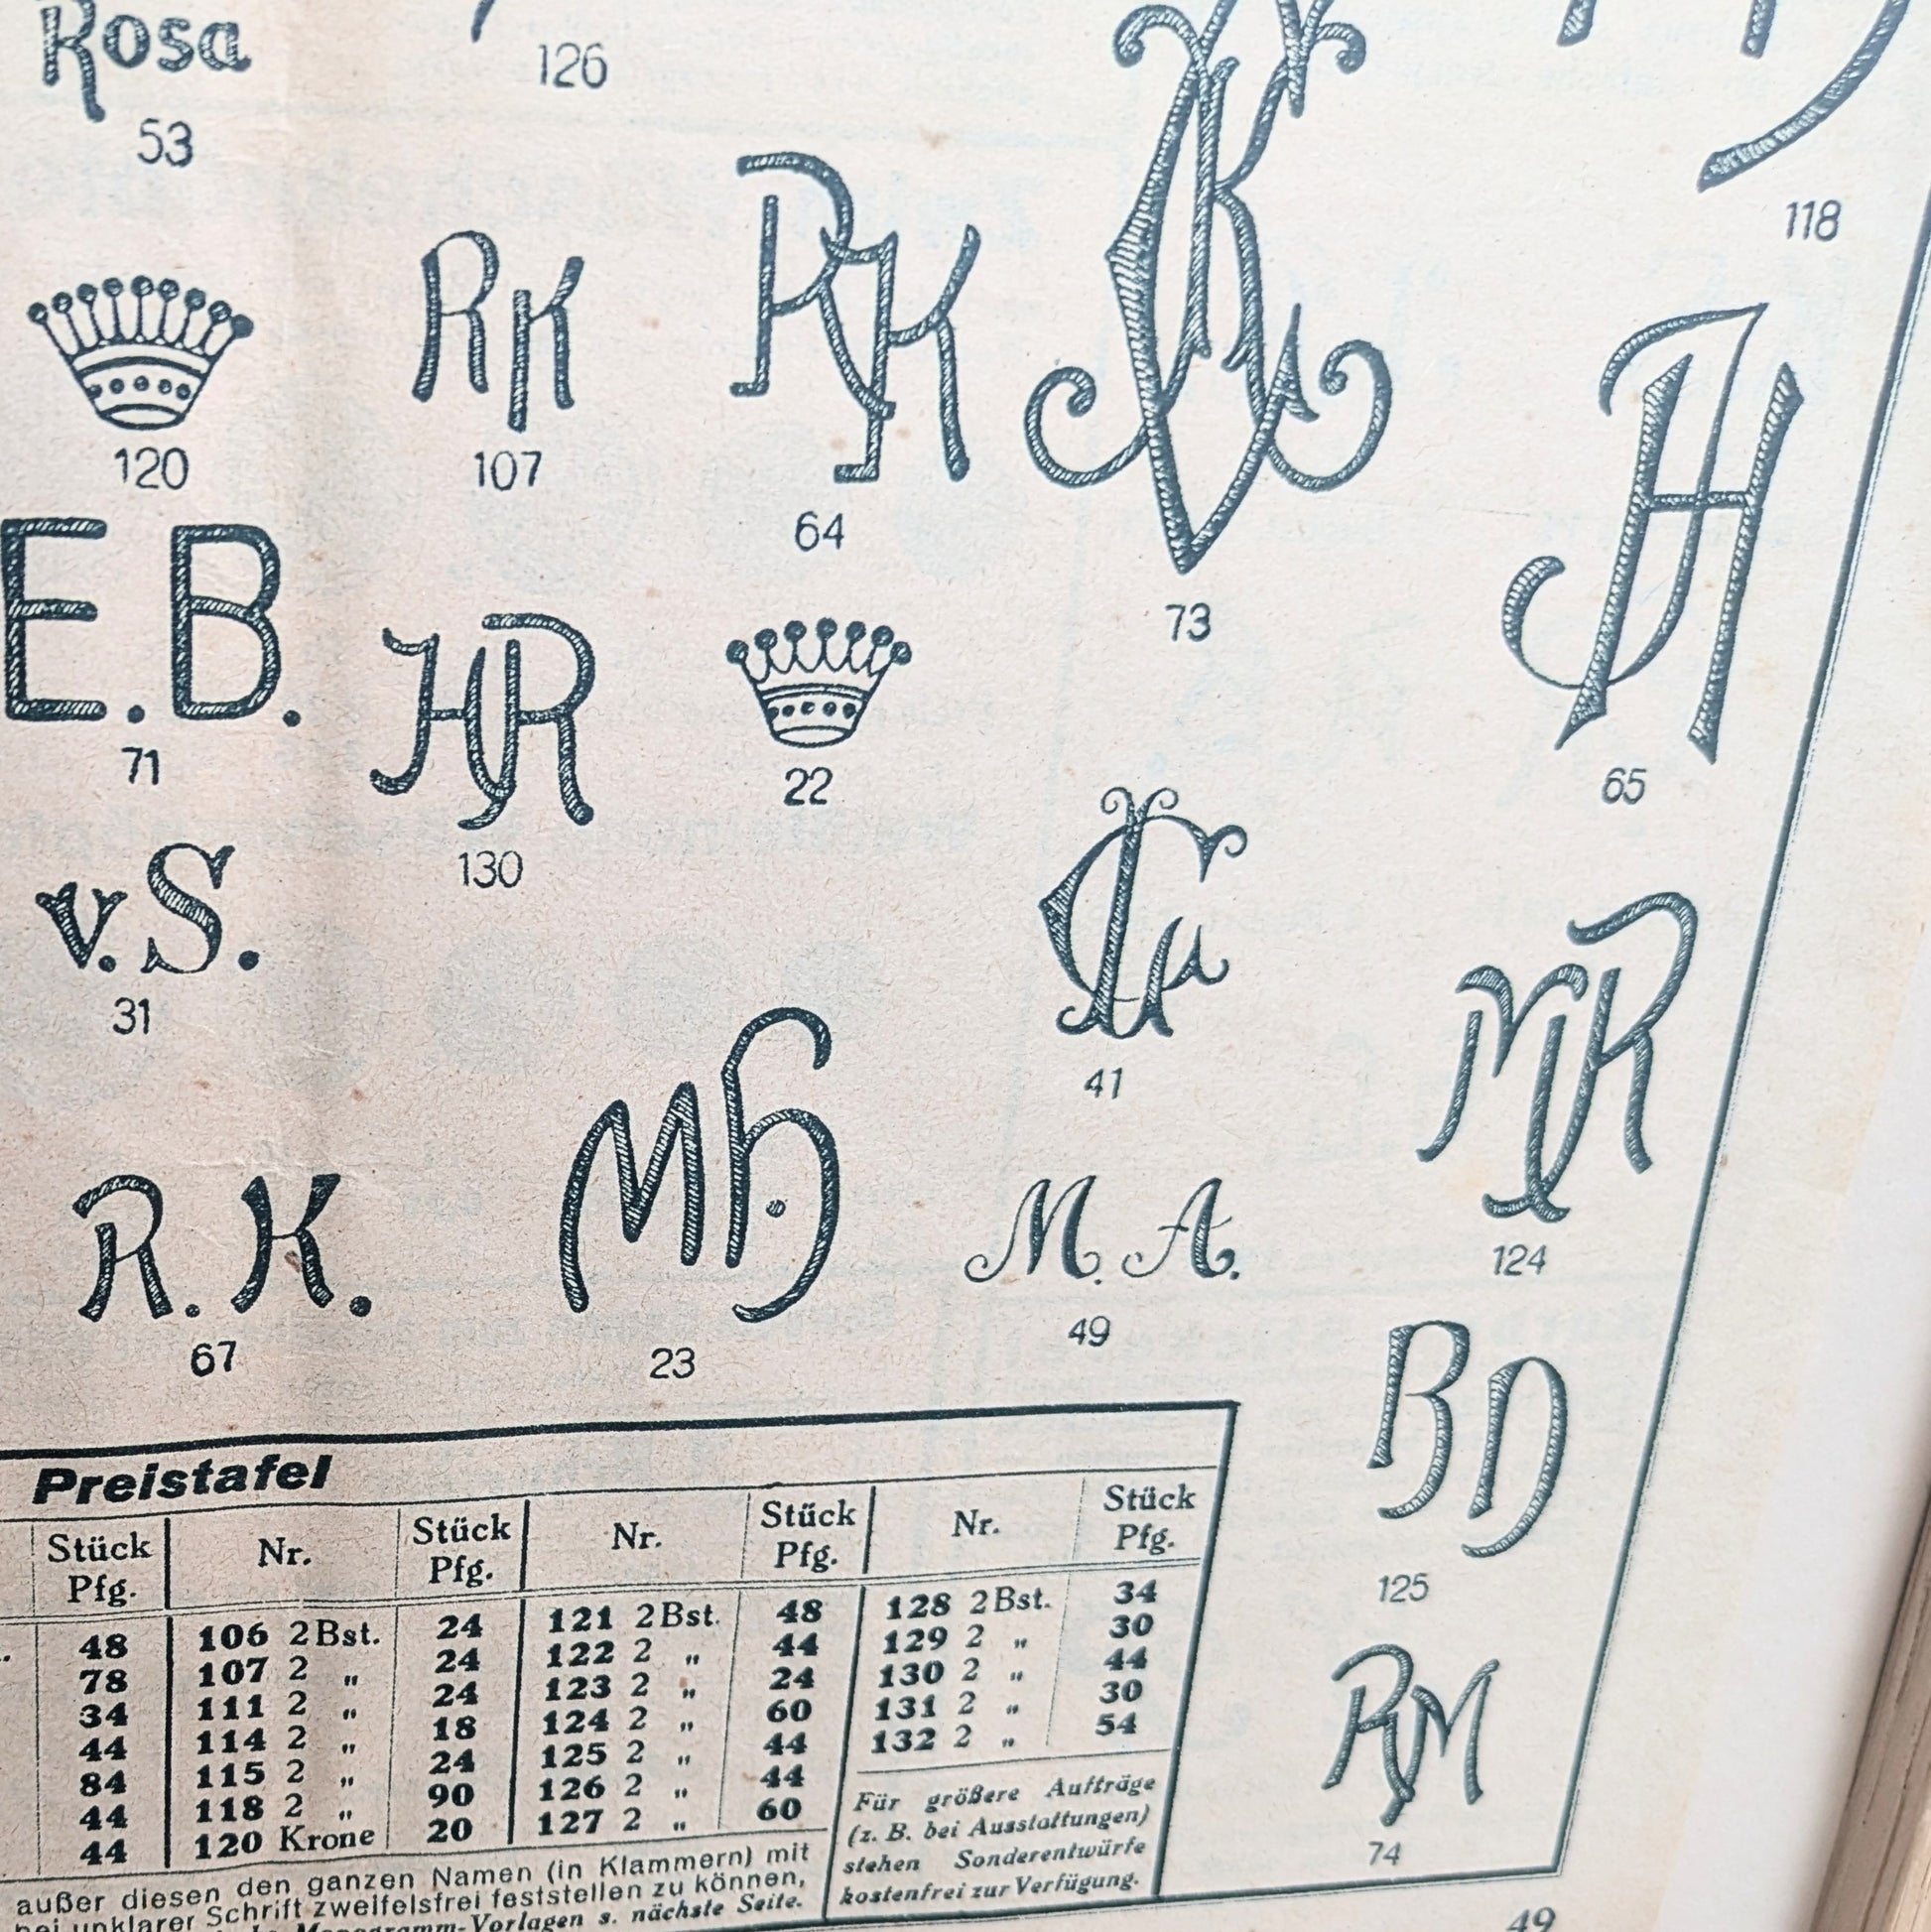 Rosa
53
126
118
120
RK
107
RK
64
73
JH
65
E.B.
71
HR
130
22
v.S.
31
41
MR
124
R.K.
67
Mh
23
M.A.
49
BD
125
RM
74
Preistafel
Stück Pfg. Nr. Stück Pfg. Nr. Stück Pfg. Nr. Stück Pfg.
48 106 2 Bst. 24 121 2 Bst. 48 128 2 Bst. 34
78 107 2 „ 24 122 2 „ 44 129 2 „ 30
34 111 2 „ 24 123 2 „ 24 130 2 „ 44
44 114 2 „ 18 124 2 „ 60 131 2 „ 30
84 115 2 „ 24 125 2 „ 44 132 2 „ 54
44 118 2 „ 90 126 2 „ 44
44 120 Krone 20 127 2 „ 60
Für größere Aufträge
(z. B. bei Ausstattungen)
stehen Sonderentwürfe
kostenfrei zur Verfügung.
außer diesen den ganzen Namen (in Klammern) mit
bei unklarer Schrift zweifelsfrei feststellen zu können,
Monogramm-Vorlagen s. nächste Seite.
49